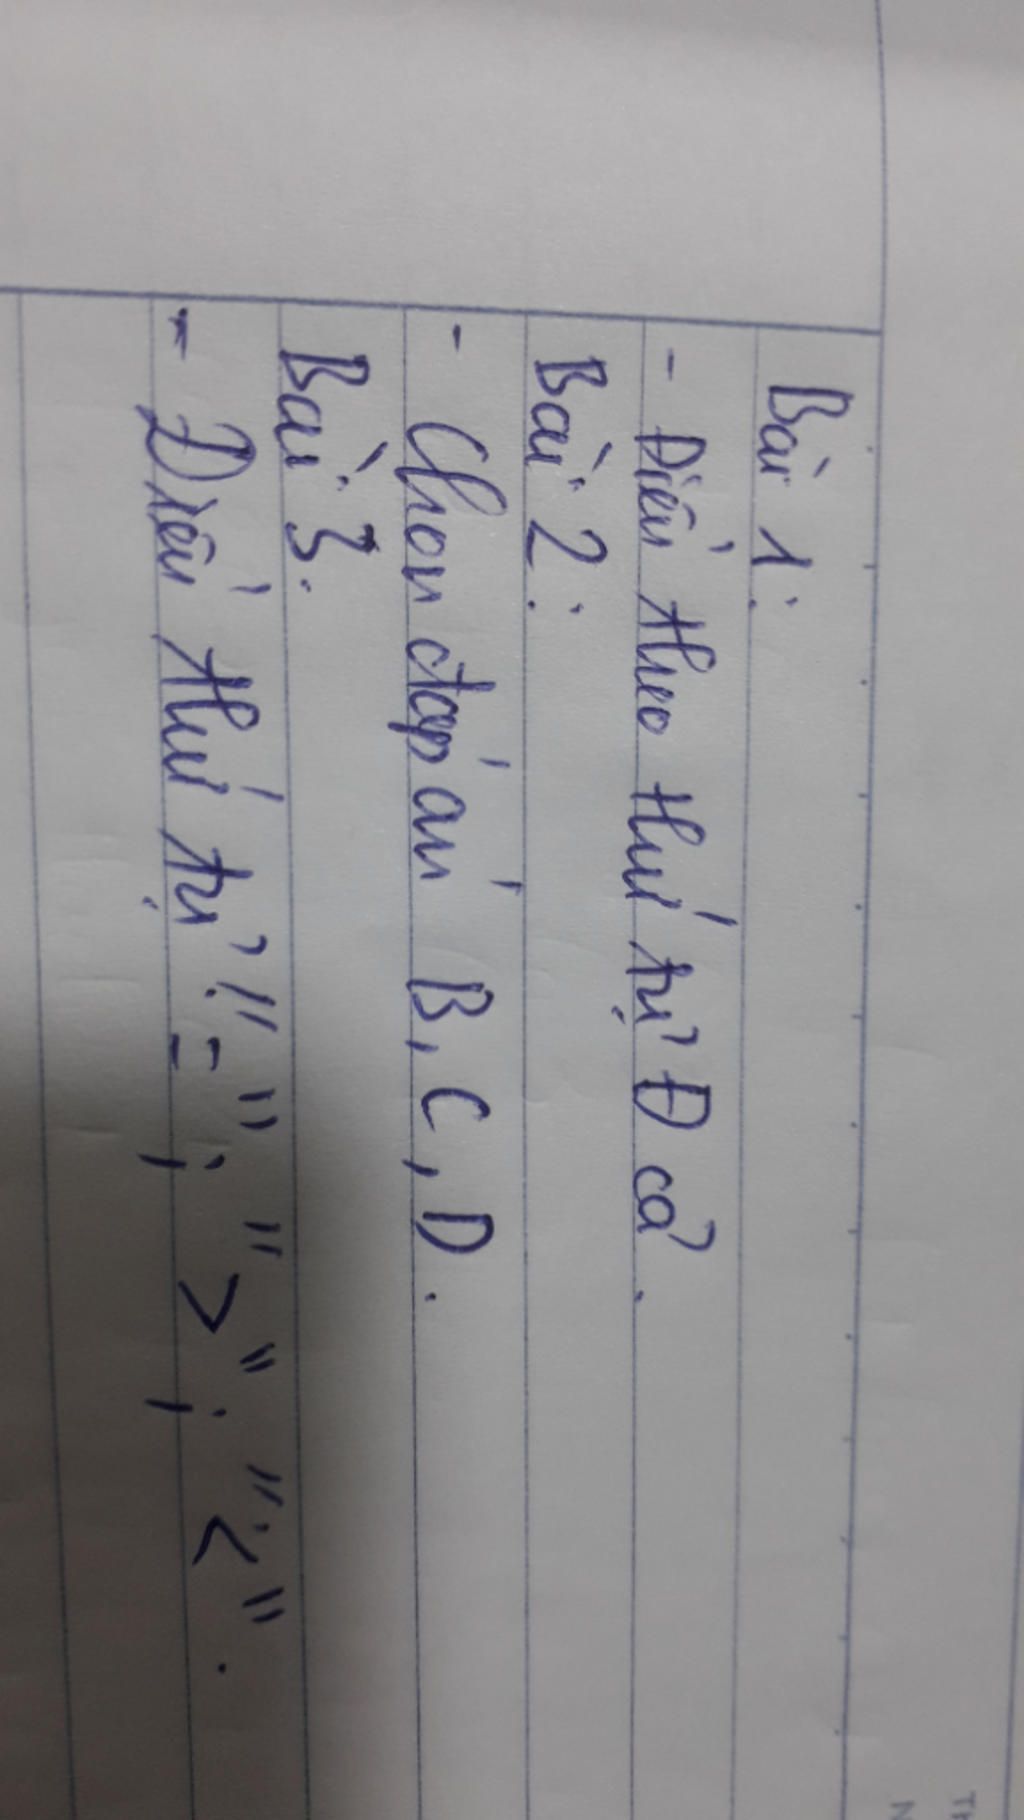 Bài 1:
- Điền theo thứ tự Đ cả.
Bài 2:
- Chọn đáp án B, C, D.
Bài 3.
- Điền thứ tự "="; ">"; "<".